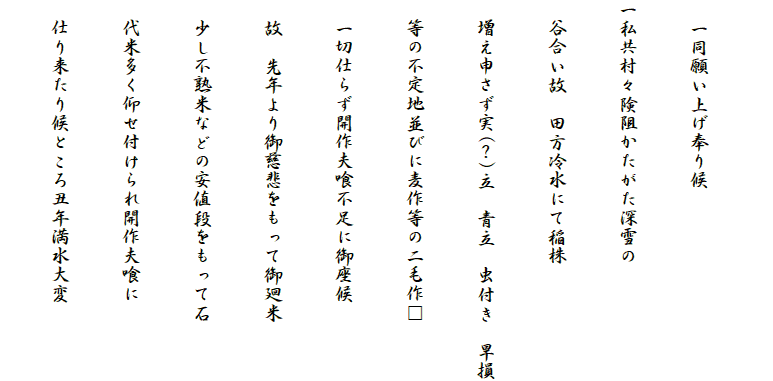 一同願い上げ奉り候
一私共村々険阻かたがた深雪の
谷合い故　田方冷水にて稲株
増え申さず実(？)立　青立　虫付き　旱損
等の不定地並びに麦作等の二毛作□
一切仕らず開作夫喰不足に御座候
故　先年より御慈悲をもって御廻米
少し不熟米などの安値段をもって石
代米多く仰せ付けられ開作夫喰に
仕り来たり候ところ丑年満水大変